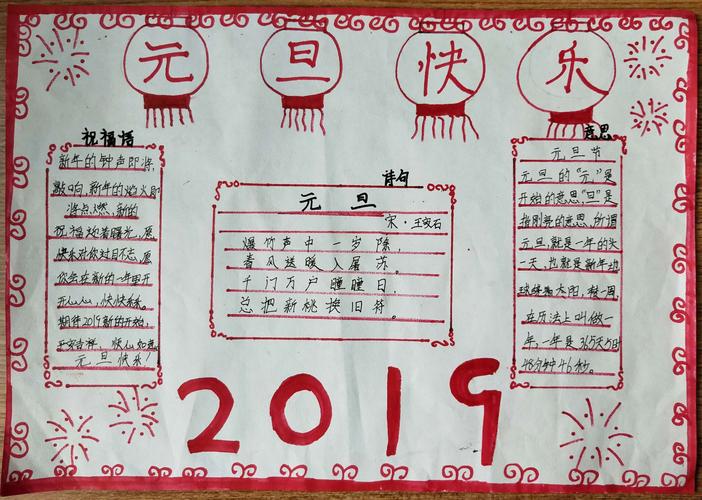 元旦快乐
祝福语
新年的钟声即将
敲响,新年的焰火即
将点燃,新的
祝福迎着曙光,愿
快乐对你过目不忘,愿
你会在新的一年里开
开心心,快快乐乐。
期待2019新的开始,
平安吉祥,快心如意。
元旦快乐!
诗句
元旦
宋·王安石
爆竹声中一岁除,
春风送暖入屠苏。
千门万户瞳瞳日,
总把新桃换旧符。
意思
元旦节
元旦的“元”是
开始的意思,“旦”是
指刚亮的意思,所谓
元旦,就是一年的头
一天,也就是新年
地球绕太阳,转一周,
在历法上叫做一
年,一年是365天5时
48分钟46秒。
2019